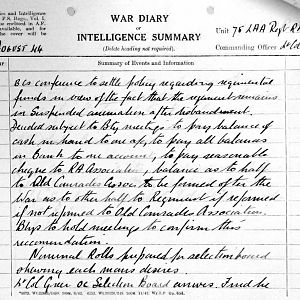 WAR DIARY
or
INTELLIGENCE SUMMARY
(Delete heading not required).
and Intelligence
F.S. Regs., Vol. I.
be enclosed in A.F.
available, and for
cover will be
AUGUST 44
Unit 75 LAA Regt RA
Commanding Officer Lt Col
Summary of Events and Information
Bs conference to settle policy regarding regimental
funds in view of the fact that the regiment remains
in suspended animation after disbandment.
subject to Bty meetings to pay balance of
cash in hand to one a/c, to pay all balances
in Bank to one account, to pay reasonable
cheque to RA Association, balance as to half
to Old Comrades Assoc to be formed after the
War as to other half to Regiment if reformed
if not reformed to Old Comrades Association.
Btys to hold meetings to confirm this
recommendation.
Nominal Rolls prepared for selection board
showing each mans desires.
Lt Col Greer OC Selection Board arrives. Find he